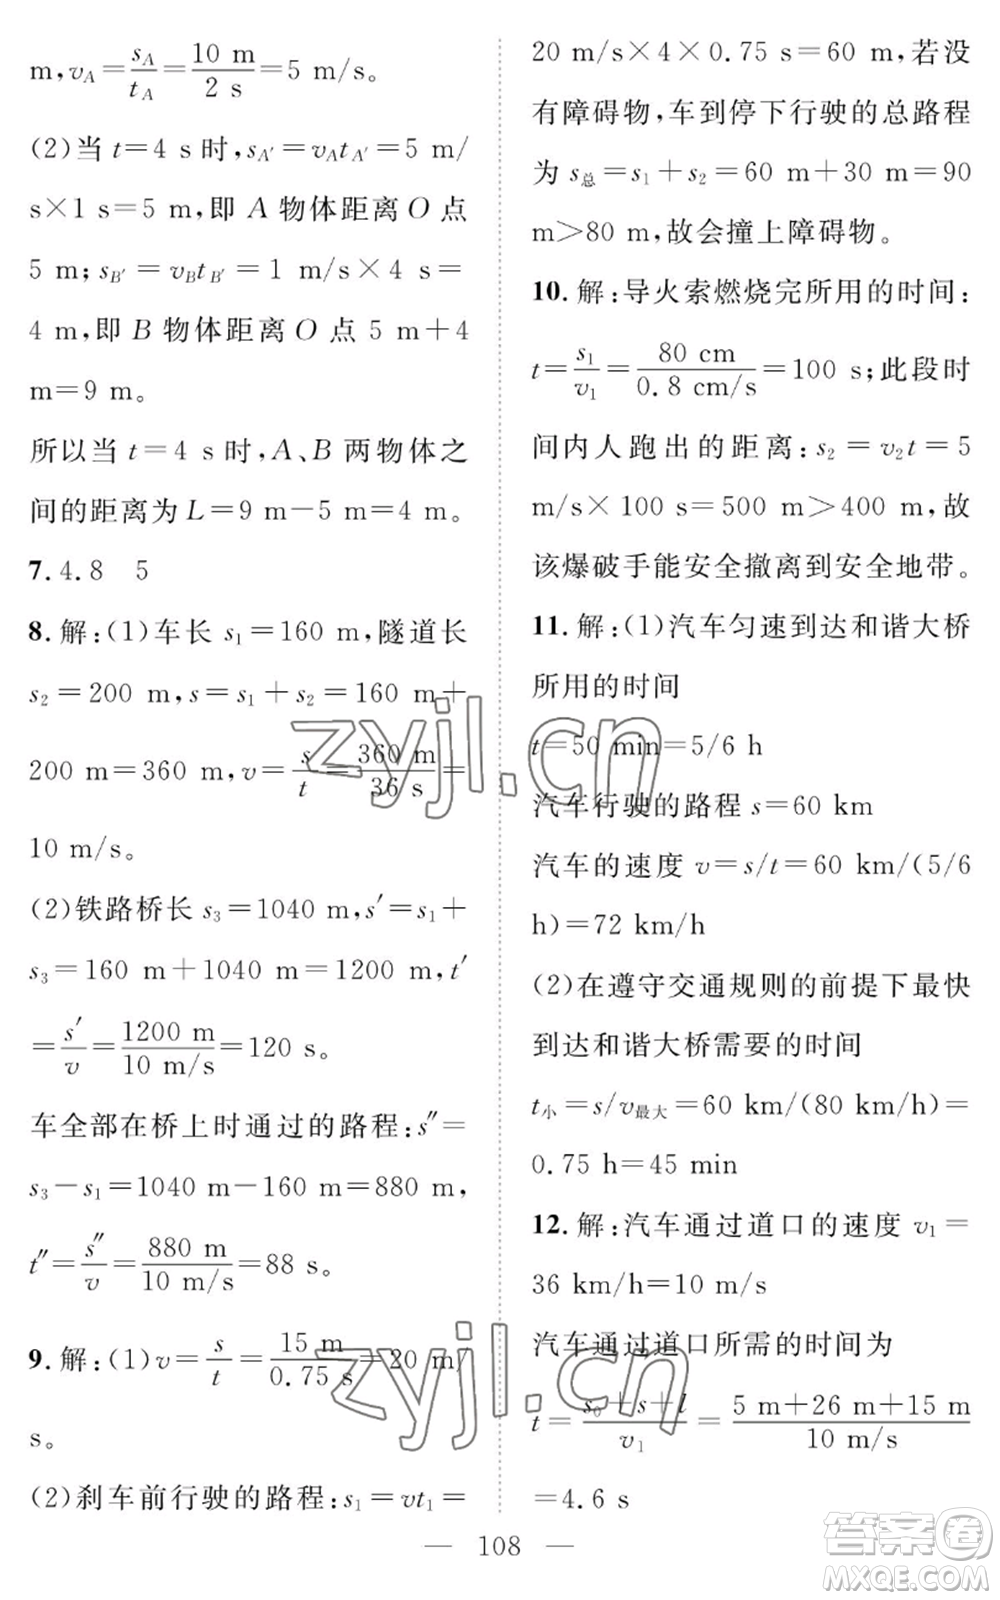 m,vA=sA/tA=10 m/2 s=5 m/s。
(2)当 t=4 s时,sA′=vAtA′=5 m/
s×1 s=5 m,即 A 物体距离 O 点
5 m;sB′=vBtB′=1 m/s×4 s=
4 m,即 B 物体距离 O 点 5 m+4
m=9 m。
所以当 t=4 s时,A、B 两物体之
间的距离为 L=9 m-5 m=4 m。
7.4.8 5
8.解:(1)车长 s1=160 m,隧道长
s2=200 m,s=s1+s2=160 m+
200 m=360 m,v=s/t=360 m/36 s=
10 m/s。
(2)铁路桥长 s3=1040 m,s′=s1+
s3=160 m+1040 m=1200 m,t′
=s′/v=1200 m/10 m/s=120 s。
车全部在桥上时通过的路程:s″=
s3-s1=1040 m-160 m=880 m,
t″=s″/v=880 m/10 m/s=88 s。
9.解:(1)v=s/t=15 m/0.75 s=20 m/
s。
(2)刹车前行驶的路程:s1=vt1=
20 m/s×4×0.75 s=60 m,若没
有障碍物,车到停下行驶的总路程
为 s总=s1+s2=60 m+30 m=90
m>80 m,故会撞上障碍物。
10.解:导火索燃烧完所用的时间:
t=s1/v1=80 cm/0.8 cm/s=100 s;此段时
间内人跑出的距离:s2=v2t=5
m/s×100 s=500 m>400 m,故
该爆破手能安全撤离到安全地带。
11.解:(1)汽车匀速到达和谐大桥
所用的时间
t=50 min=5/6 h
汽车行驶的路程 s=60 km
汽车的速度 v=s/t=60 km/(5/6
h)=72 km/h
(2)在遵守交通规则的前提下最快
到达和谐大桥需要的时间
t小=s/v最大=60 km/(80 km/h)=
0.75 h=45 min
12.解:汽车通过道口的速度 v1=
36 km/h=10 m/s
汽车通过道口所需的时间为
t=s0+s+l/v1=5 m+26 m+15 m/10 m/s
=4.6 s
— 108 —
zyjl.cn
zyjl.cn
答案圈
MXQE.COM